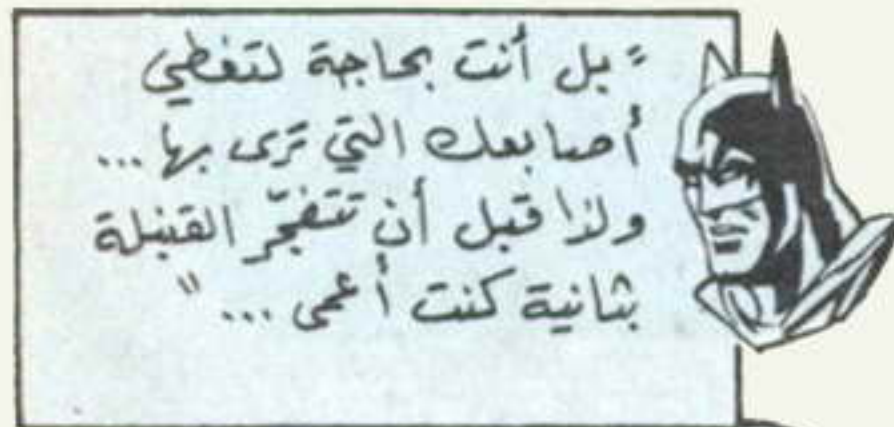 "بل أنت بحاجة لتغطي
أصابعك التي ترى بها...
ولذا قبل أن تتفجّر القنبلة
بثانية كنت أعمى..."